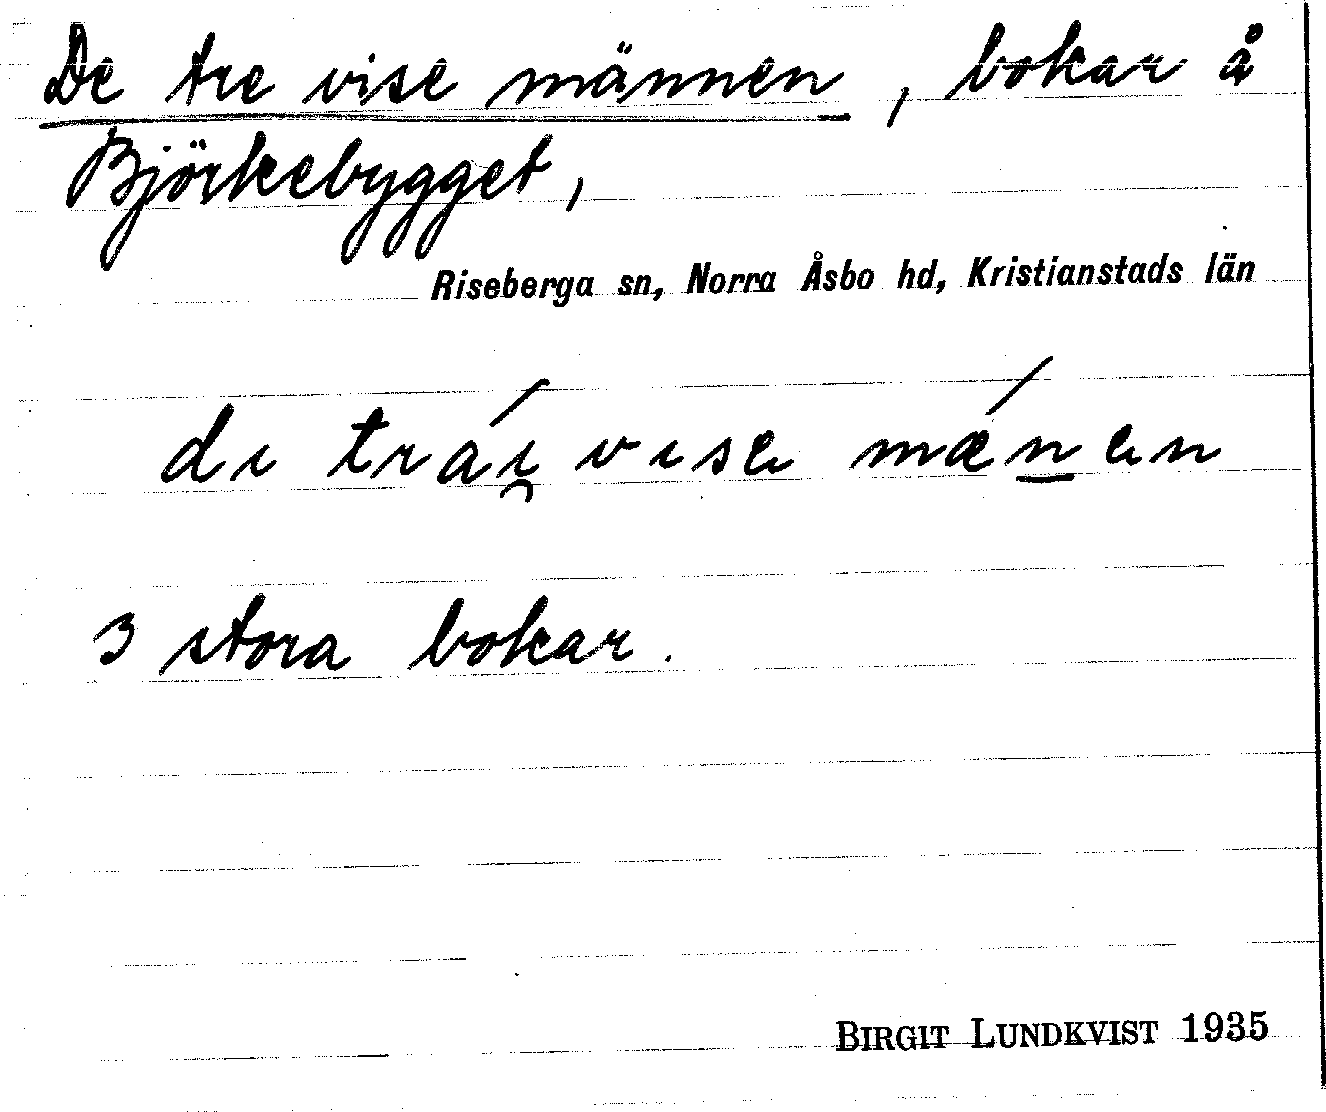 De tre vise männen, bokar å
Björkebygget,
Riseberga sn, Norra Åsbo hd, Kristianstads län
dɩ trái̯ vɩse mǽn̲en
3 stora bokar.
BIRGIT LUNDKVIST 1935